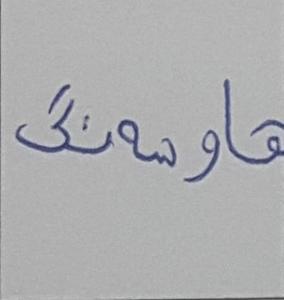 هاوسەنگ